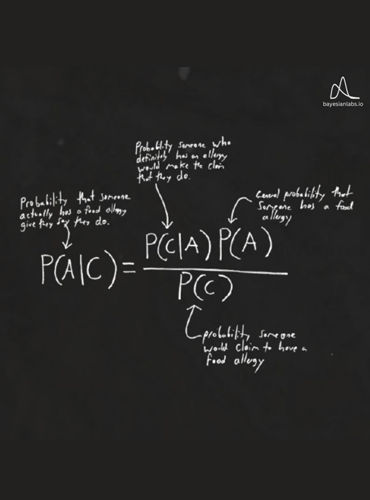 bayesianlabs.io
Probability someone who
definitely has an allergy
would make the claim
that they do.
Probability that someone
actually has a food allergy
give they say they do.
General probability that
someone has a food
allergy
P(A|C) = P(C|A) P(A)
P(C)
probability someone
would claim to have a
food allergy